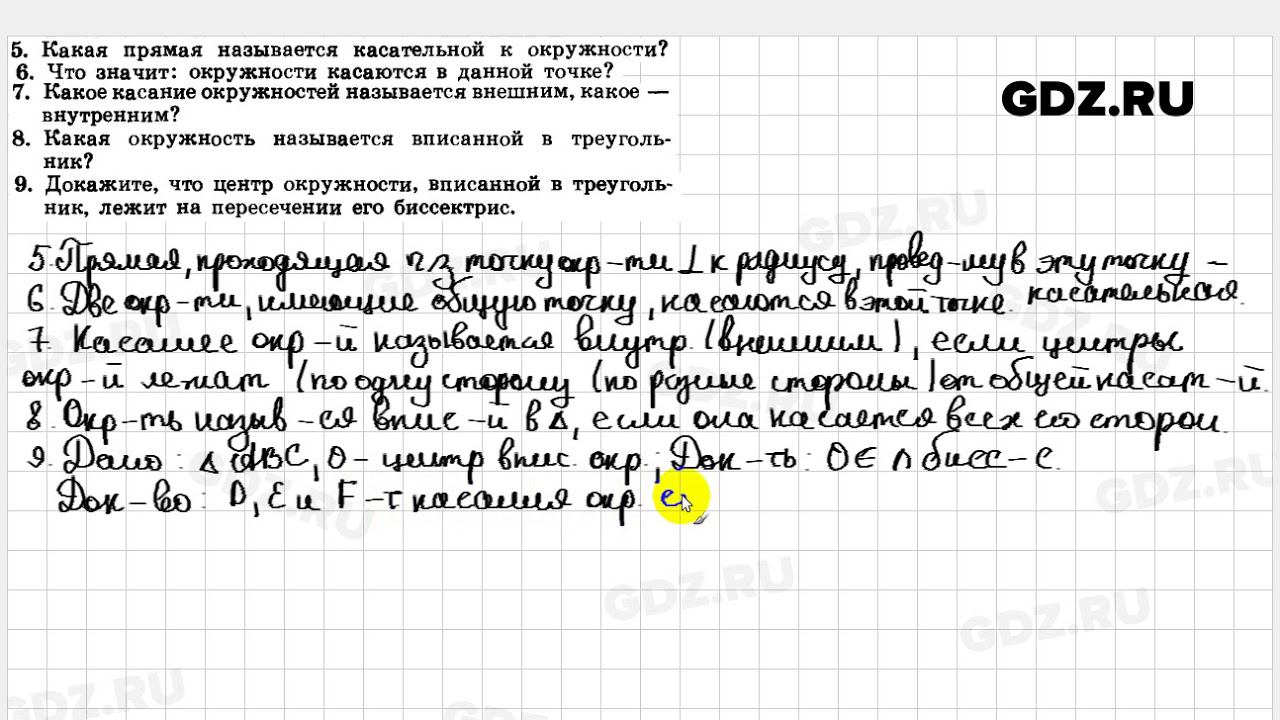 5. Какая прямая называется касательной к окружности?
6. Что значит: окружности касаются в данной точке?
7. Какое касание окружностей называется внешним, какое —
внутренним?
8. Какая окружность называется вписанной в треуголь-
ник?
9. Докажите, что центр окружности, вписанной в треуголь-
ник, лежит на пересечении его биссектрис.
GDZ.RU
5. Прямая, проходящая ч/з точку окр-ти ⊥ к радиусу, провед-му в эту точку –
касательная.
6. Две окр-ти, имеющие общую точку, касаются в этой точке.
7. Касание окр-й называется внутр. (внешним), если центры
окр-й лежат (по одну сторону (по разные стороны) от общей касат-й.
8. Окр-ть назыв-ся впис-й в Δ, если она касается всех его сторон.
9. Дано: Δ ABC, O - центр впис. окр.; Док-ть: O ∈ ∩ бисс-с.
Док-во: D, E и F - т касания окр. с